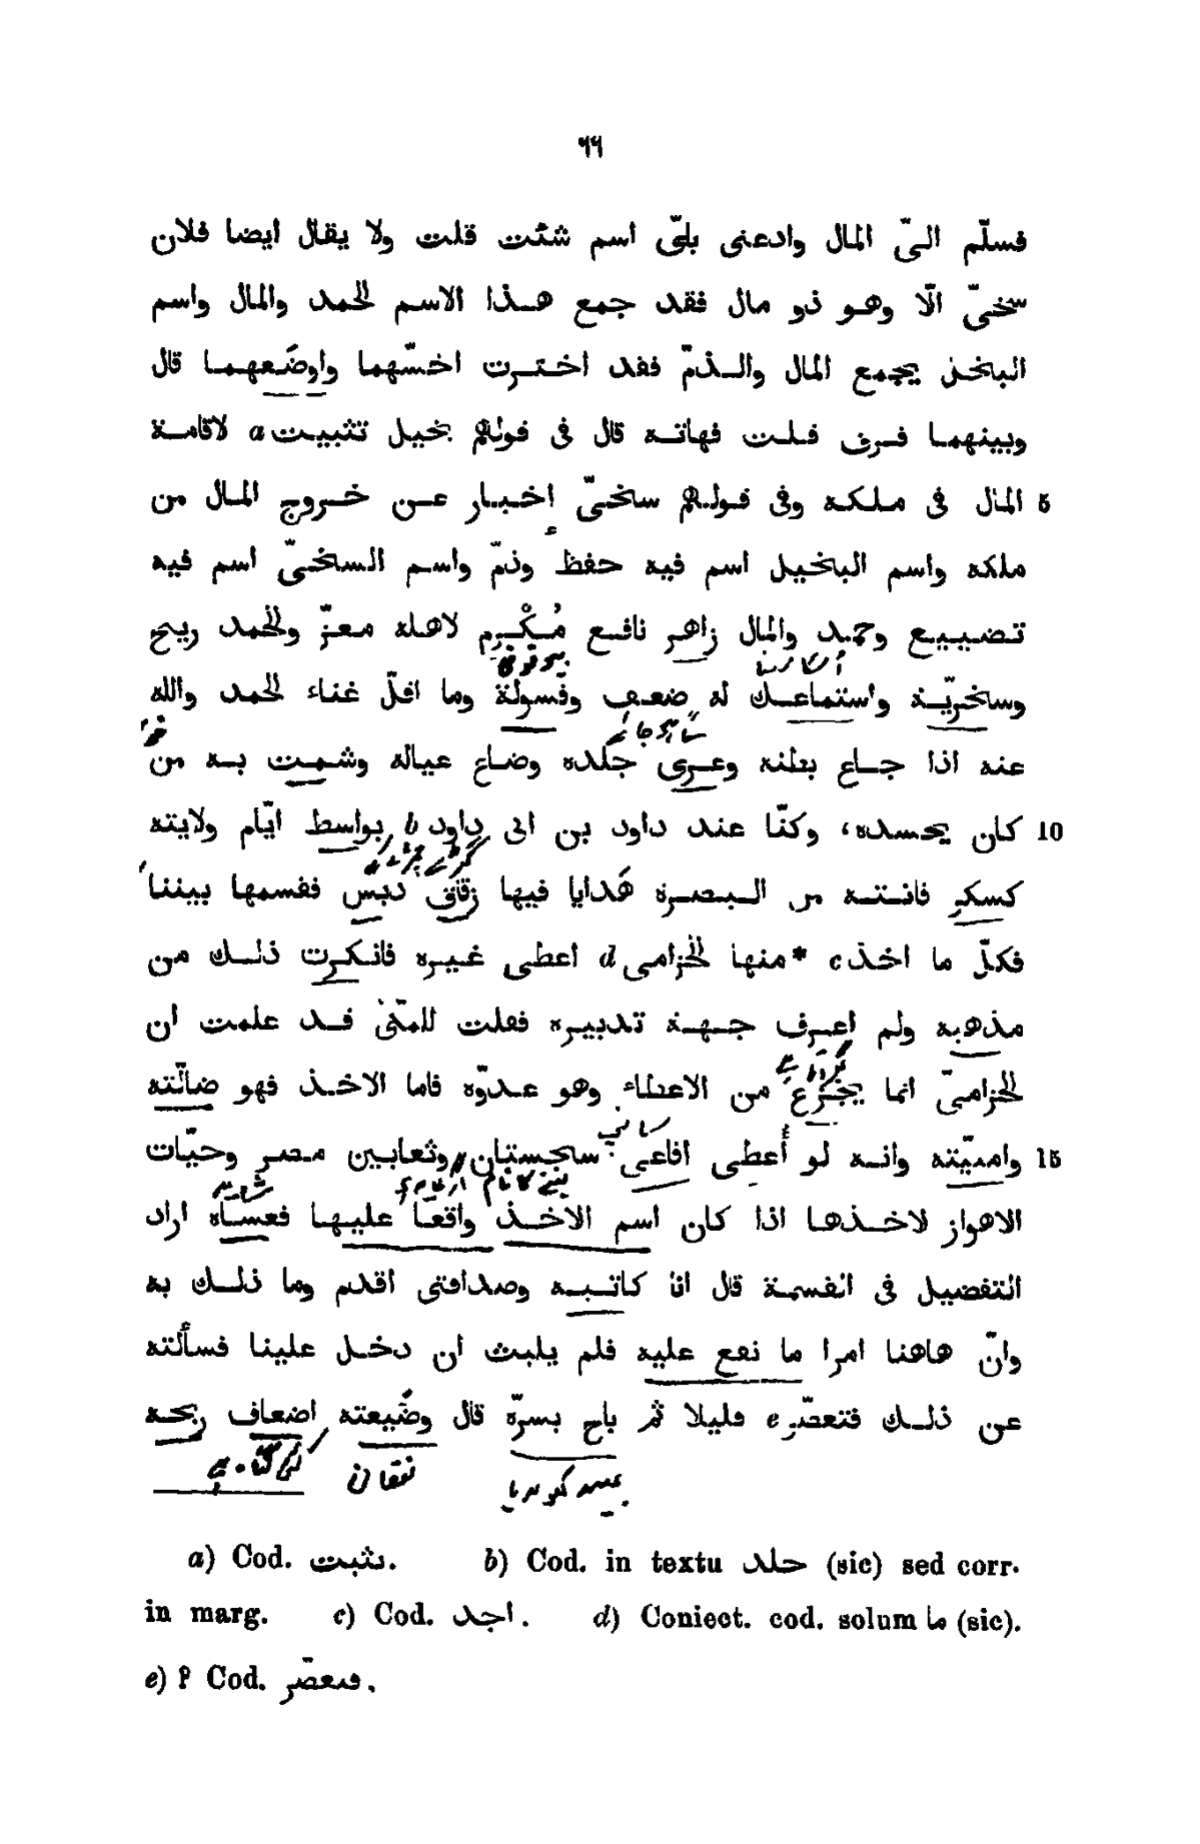 ٦٦
فسلّم الىّ المال وادعنى باىّ اسم شئت قلت ولا يقال ايضا فلان
سخىّ الّا وهو ذو مال فقد جمع هذا الاسم الحمد والمال واسم
البخل يجمع المال والذمّ فقد اخترت اخسّهما واوضعهما قال
وبينهما فرق قلت فهاته قال فى قولهم بخيل تثبيت a لاقامة
5 المال فى ملكه وفى قولهم سخىّ إخبار عن خروج المال من
ملكه واسم البخيل اسم فيه حفظ وذمّ واسم السخىّ اسم فيه
تضييع وحمد والمال زاهر نافع مُكْرِم لاهله معزّ والحمد ريح
وسخريّة واستماعك له ضعف وفسولة وما اقلّ غناء الحمد والله
عنه اذا جاع بطنه وعرى جلده وضاع عياله وشمت به من
10 كان يحسده، وكنّا عند داود بن ابى داود b بواسط ايّام ولايته
كسكر فاتته من البصرة هَدايا فيها زقاق دبس فقسمها بيننا
فكلّ ما اخذ c *منها الحزامى d اعطى غيره فانكرت ذلك من
مذهبه ولم اعرف جهة تدبيره فقلت للمكّى قد علمت ان
الحزامىّ انما يجزع من الاعطاء وهو عدوّه فاما الاخذ فهو ضالّته
15 وامنيّته وانه لو أُعطى افاعى سجستان وثعابين مصر وحيّات
الاهواز لاخذها اذا كان اسم الاخذ واقعا عليها فعساه اراد
التفضيل فى القسمة قال انا كاتبه وصداقتى اقدم وما ذلك به
وانّ هاهنا امرا ما نقع عليه فلم يلبث ان دخل علينا فسألته
عن ذلك فتعصّر e قليلا ثم باح بسرّه قال وضيعته اضعاف ربحه
نقصان
a) Cod. نثبت.    b) Cod. in textu حلد (sic) sed corr.
in marg.    c) Cod. اجد.    d) Coniect. cod. solum ما (sic).
e) ? Cod. فىعصّر.